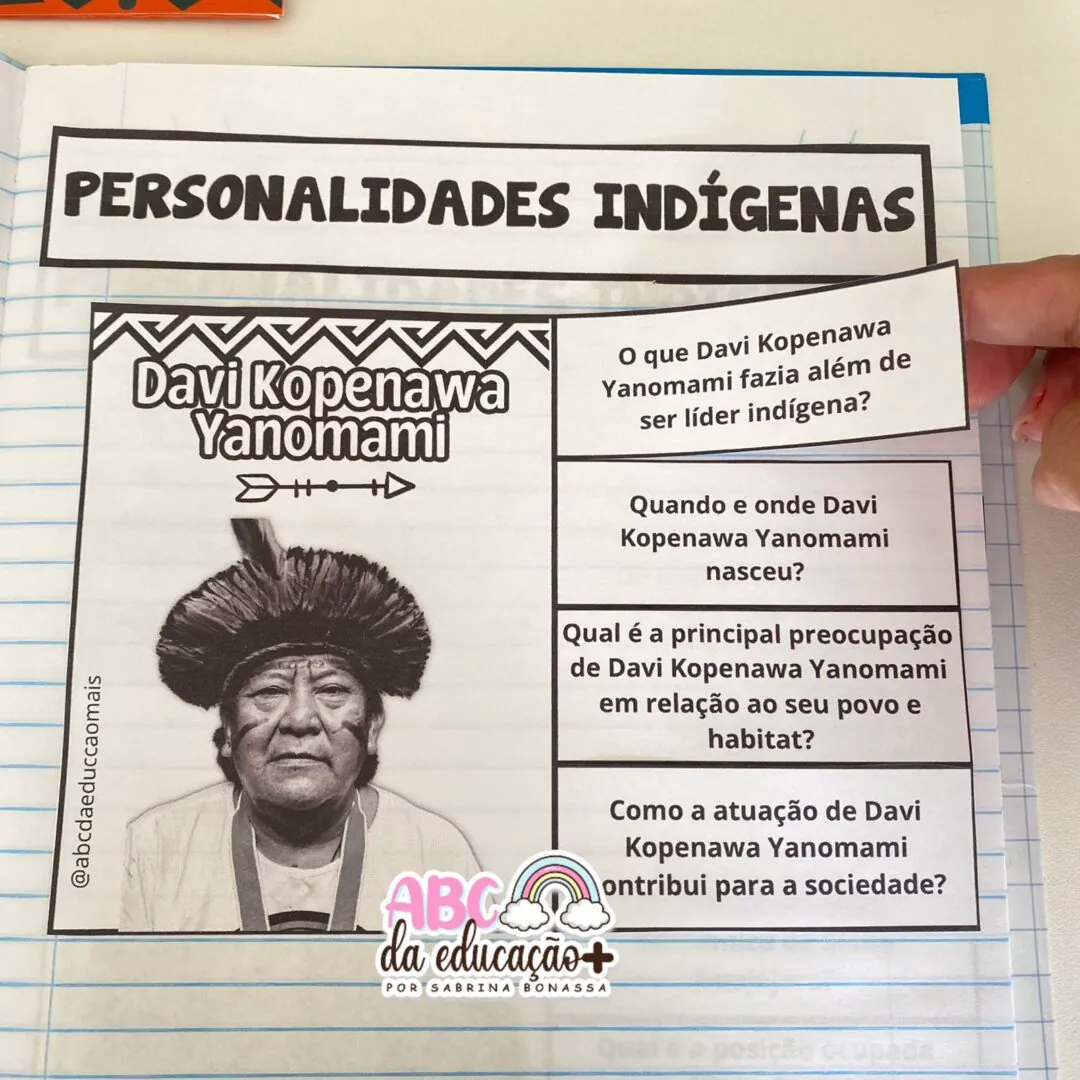 PERSONALIDADES INDÍGENAS
Davi Kopenawa
Yanomami
@abcdaeduccaomais
O que Davi Kopenawa
Yanomami fazia além de
ser líder indígena?
Quando e onde Davi
Kopenawa Yanomami
nasceu?
Qual é a principal preocupação
de Davi Kopenawa Yanomami
em relação ao seu povo e
habitat?
Como a atuação de Davi
Kopenawa Yanomami
ontribui para a sociedade?
ABC
da educação+
POR SABRINA BONASSA
Qual é a posição ocupada